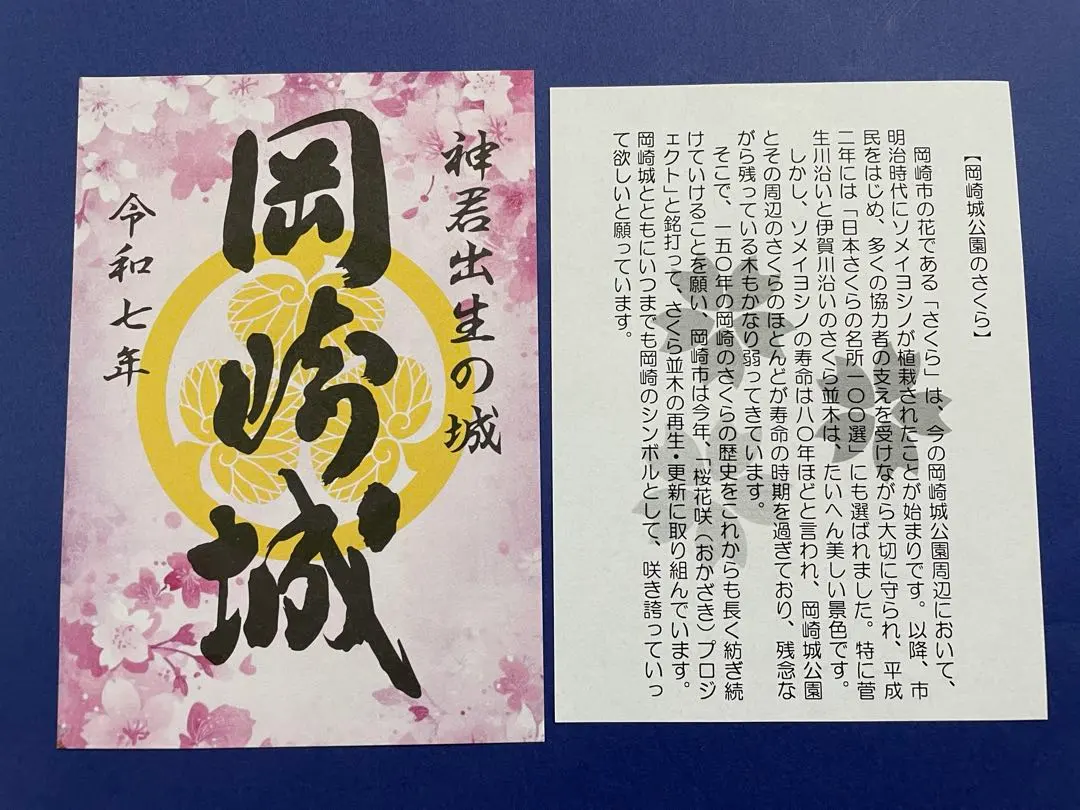 神君出生の城
岡崎城
令和七年
【岡崎城公園のさくら】
岡崎市の花である「さくら」は、今の岡崎城公園周辺において、
明治時代にソメイヨシノが植栽されたことが始まりです。以降、市
民をはじめ、多くの協力者の支えを受けながら大切に守られ、平成
二年には「日本さくらの名所一〇〇選」にも選ばれました。特に菅
生川沿いと伊賀川沿いのさくら並木は、たいへん美しい景色です。
しかし、ソメイヨシノの寿命は八〇年ほどと言われ、岡崎城公園
とその周辺のさくらのほとんどが寿命の時期を過ぎており、残念な
がら残っている木もかなり弱ってきています。
そこで、一五〇年の岡崎のさくらの歴史をこれからも長く紡ぎ続
けていけることを願い、岡崎市は今年、「桜花咲(おかざき)プロジ
ェクト」と銘打って、さくら並木の再生・更新に取り組んでいます。
岡崎城とともにいつまでも岡崎のシンボルとして、咲き誇っていっ
て欲しいと願っています。